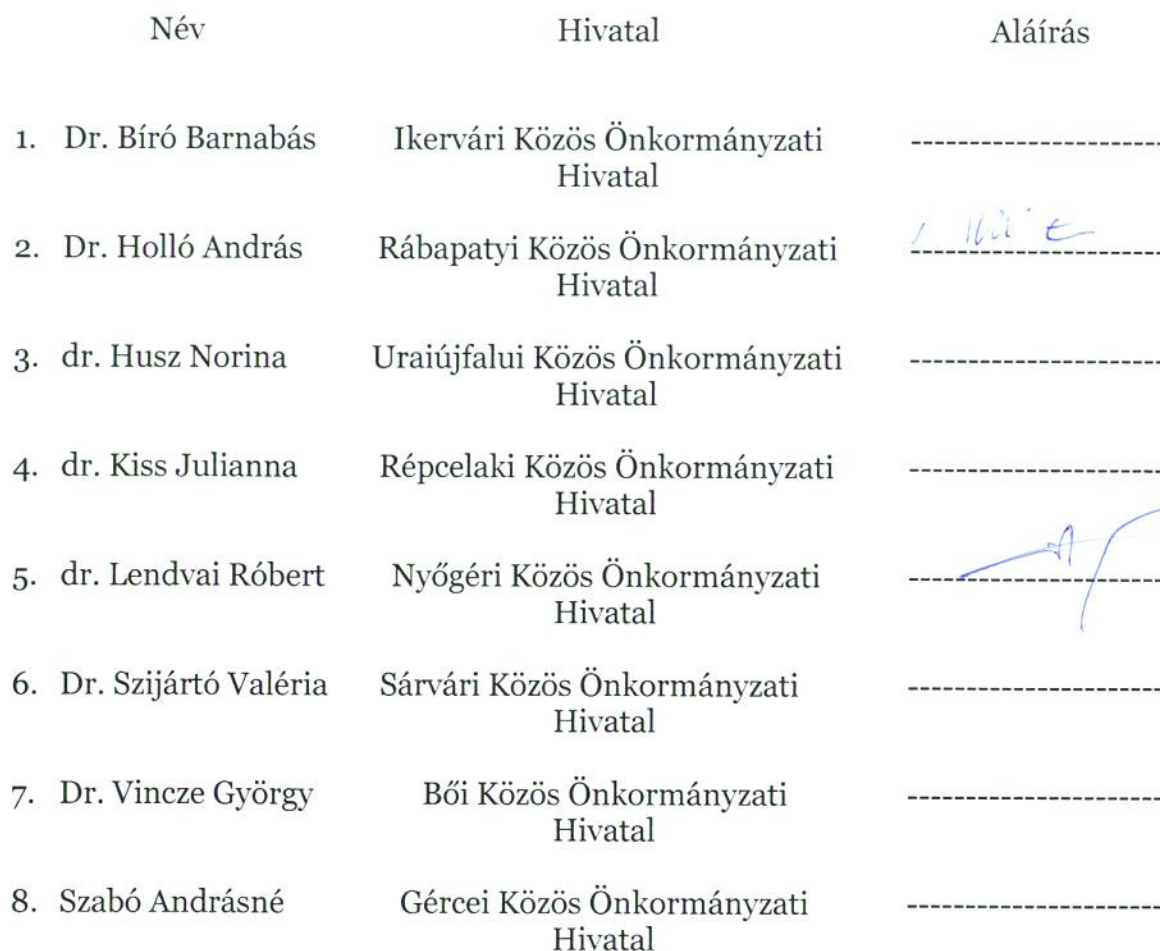 Név Hivatal Aláírás
1. Dr. Bíró Barnabás Ikervári Közös Önkormányzati
Hivatal
2. Dr. Holló András Rábapatyi Közös Önkormányzati
Hivatal
3. dr. Husz Norina Uraiújfalui Közös Önkormányzati
Hivatal
4. dr. Kiss Julianna Répcelaki Közös Önkormányzati
Hivatal
5. dr. Lendvai Róbert Nyőgéri Közös Önkormányzati
Hivatal
6. Dr. Szijártó Valéria Sárvári Közös Önkormányzati
Hivatal
7. Dr. Vincze György Bői Közös Önkormányzati
Hivatal
8. Szabó Andrásné Gércei Közös Önkormányzati
Hivatal